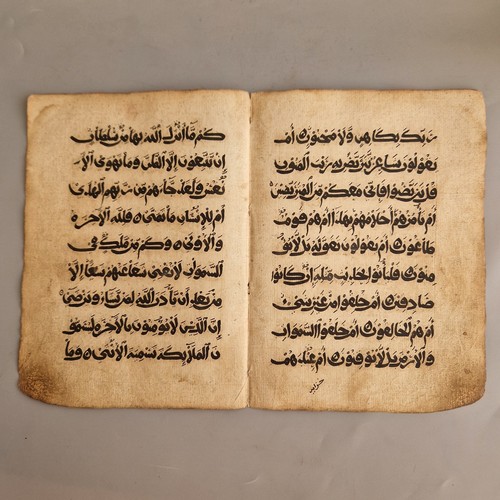 ربك بكاهن ولا مجنون ام
يقولون شاعر نتربص به ريب المنون
قل تربصوا فاني معكم من المتربصين
ام تامرهم احلامهم بهذا ام هم قوم
طاغون ام يقولون تقوله بل لا يؤ
منون فلياتوا بحديث مثله ان كانوا
صادقين ام خلقوا من غير شيء
ام هم الخالقون ام خلقوا السموات
والارض بل لا يوقنون ام عندهم
خزاين
كم ما انزل الله بها من سلطان
ان يتبعون الا الظن وما تهوى الا
نفس ولقد جاءهم من ربهم الهدى
ام للانسان ما تمنى ه فلله الاخرة
والاولى ه وكم من ملك في
السموات لا تغني شفاعتهم شيئا الا
من بعد ان ياذن الله لمن يشاء ويرضى
ان الذين لا يؤمنون بالاخرة ليسمو
ن الملائكة تسمية الانثى ه وما